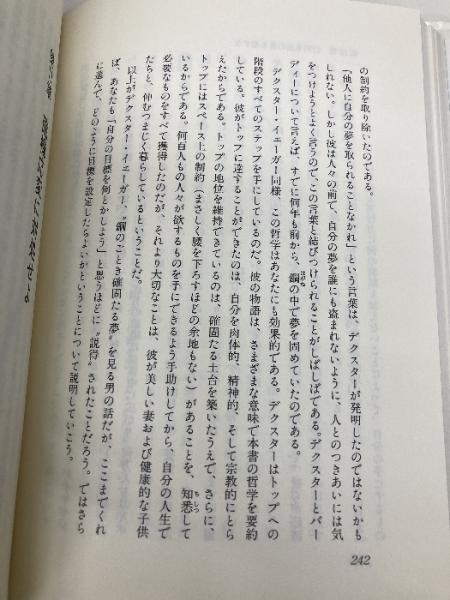 の制約を取り除いたのである。
「他人に自分の夢を取られることなかれ」という言葉は、デクスターが発明したのではないかも
しれない。しかし彼は人々の前で、自分の夢を誰にも盗まれないように、人とのつきあいには気
をつけようとよく言うので、この言葉と結びつけられることがしばしばである。デクスターとバー
ディーについて言えば、すでに何年も前から、鋼の中で夢を固めていたのである。
デクスター・イェーガー同様、この哲学はあなたにも効果的である。デクスターはトップへの
階段のすべてのステップを手にしているのだ。彼の物語は、さまざまな意味で本書の哲学を要約
している。彼がトップに達することができたのは、自分を肉体的、精神的、そして宗教的にとら
えたからである。トップの地位を維持できているのは、確固たる土台を築いたうえで、さらに、
トップにはスペース上の制約（まさしく腰を下ろすほどの余地もない）があることを、知悉して
いるからである。何百人もの人々が欲するものを手にできるよう手助けしてから、自分の人生で
必要なものをすべて獲得したのだが、それより大切なことは、彼が美しい妻および健康的な子供
たちと、仲むつまじく暮らしているということだ。
以上がデクスター・イェーガー、〝鋼のごとき確固たる夢〟を見る男の話だが、ここまでくれ
ば、あなたも「自分の目標を何とかしよう」と思うほどに〝説得〟されたことだろう。ではさら
に進んで、どのように目標を設定したらよいかということについて説明していこう。
242